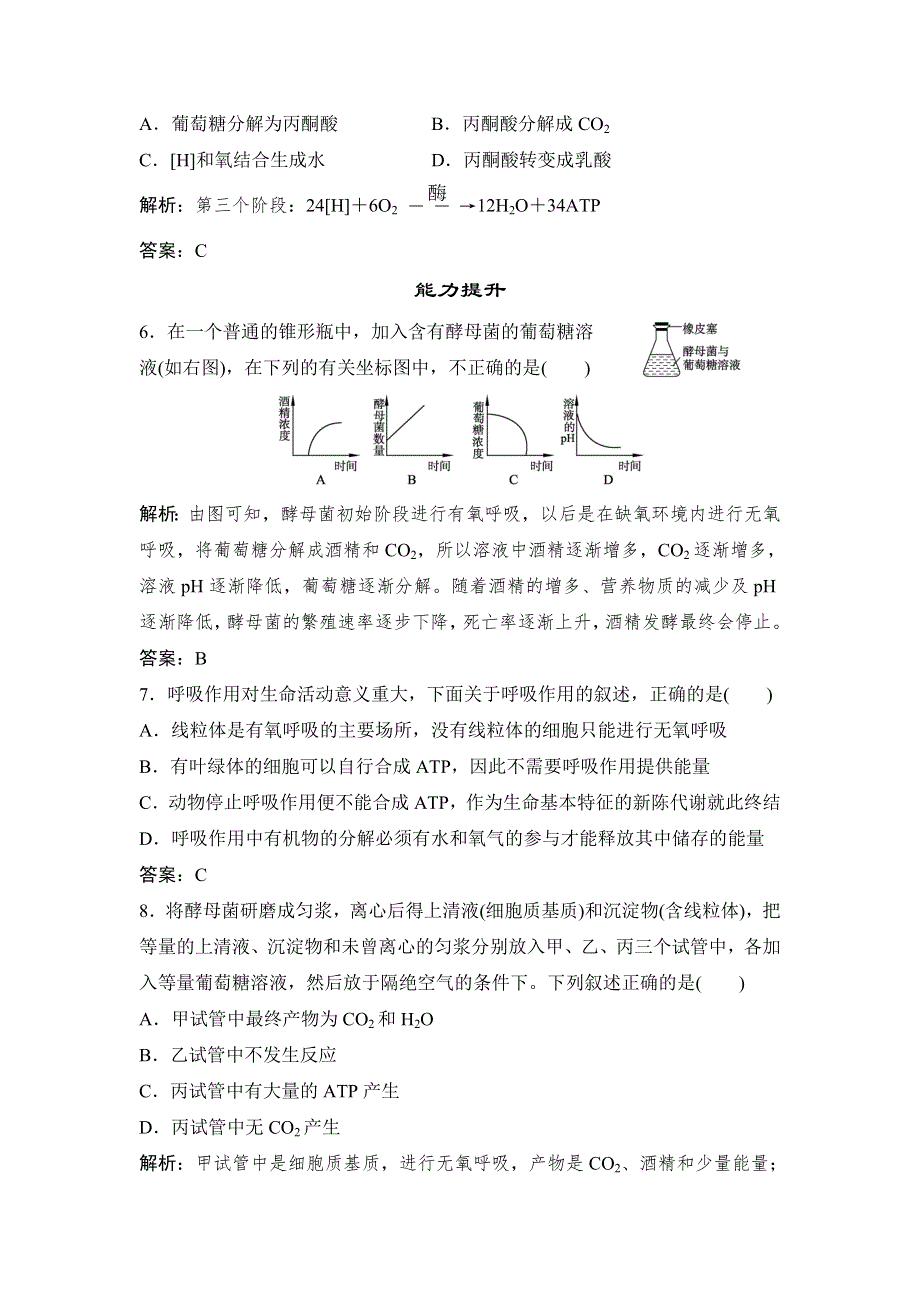 A．葡萄糖分解为丙酮酸　　B．丙酮酸分解成CO₂
C．[H]和氧结合生成水　　D．丙酮酸转变成乳酸
解析：第三个阶段：24[H]＋6O₂ —酶→12H₂O＋34ATP
答案：C
能力提升
6．在一个普通的锥形瓶中，加入含有酵母菌的葡萄糖溶
液(如右图)，在下列的有关坐标图中，不正确的是(　　)
橡皮塞
酵母菌与
葡萄糖溶液
酒精浓度 时间 A
酵母菌数量 时间 B
葡萄糖浓度 时间 C
溶液的pH 时间 D
解析：由图可知，酵母菌初始阶段进行有氧呼吸，以后是在缺氧环境内进行无氧
呼吸，将葡萄糖分解成酒精和CO₂，所以溶液中酒精逐渐增多，CO₂逐渐增多，
溶液pH逐渐降低，葡萄糖逐渐分解。随着酒精的增多、营养物质的减少及pH
逐渐降低，酵母菌的繁殖速率逐步下降，死亡率逐渐上升，酒精发酵最终会停止。
答案：B
7．呼吸作用对生命活动意义重大，下面关于呼吸作用的叙述，正确的是(　　)
A．线粒体是有氧呼吸的主要场所，没有线粒体的细胞只能进行无氧呼吸
B．有叶绿体的细胞可以自行合成ATP，因此不需要呼吸作用提供能量
C．动物停止呼吸作用便不能合成ATP，作为生命基本特征的新陈代谢就此终结
D．呼吸作用中有机物的分解必须有水和氧气的参与才能释放其中储存的能量
答案：C
8．将酵母菌研磨成匀浆，离心后得上清液(细胞质基质)和沉淀物(含线粒体)，把
等量的上清液、沉淀物和未曾离心的匀浆分别放入甲、乙、丙三个试管中，各加
入等量葡萄糖溶液，然后放于隔绝空气的条件下。下列叙述正确的是(　　)
A．甲试管中最终产物为CO₂和H₂O
B．乙试管中不发生反应
C．丙试管中有大量的ATP产生
D．丙试管中无CO₂产生
解析：甲试管中是细胞质基质，进行无氧呼吸，产物是CO₂、酒精和少量能量；